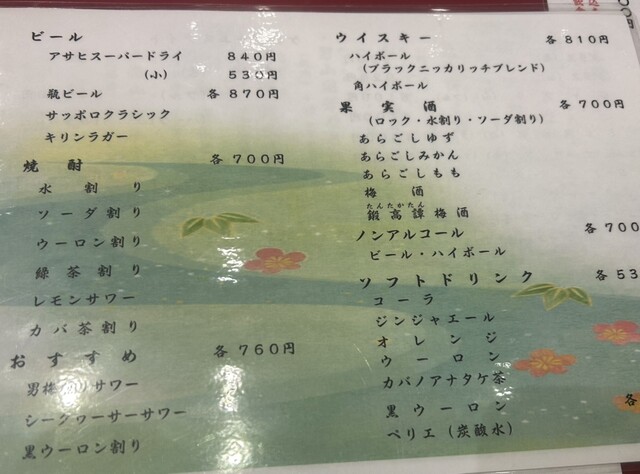 ビール
アサヒスーパードライ 840円
(小) 530円
瓶ビール 各 870円
サッポロクラシック
キリンラガー
焼酎 各 700円
水割り
ソーダ割り
ウーロン割り
緑茶割り
レモンサワー
カバ茶割り
おすすめ 各 760円
男梅 サワー
シークヮーサーサワー
黒ウーロン割り
ウイスキー 各 810円
ハイボール
(ブラックニッカリッチブレンド)
角ハイボール
果実酒 各 700円
(ロック・水割り・ソーダ割り)
あらごしゆず
あらごしみかん
あらごしもも
梅酒
たんたかたん
鍛高譚梅酒
ノンアルコール 各 700
ビール・ハイボール
ソフトドリンク 各 53
コーラ
ジンジャエール
オレンジ
ウーロン
カバノアナタケ茶
黒ウーロン
ペリエ(炭酸水)
各